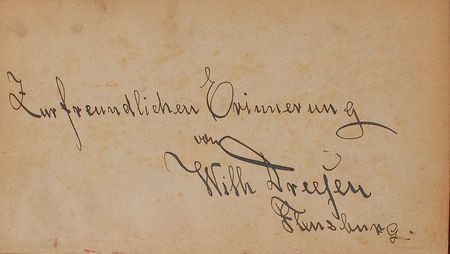 Zur freundlichen Erinnerung
von
Wilh Dreesen
Flensburg.